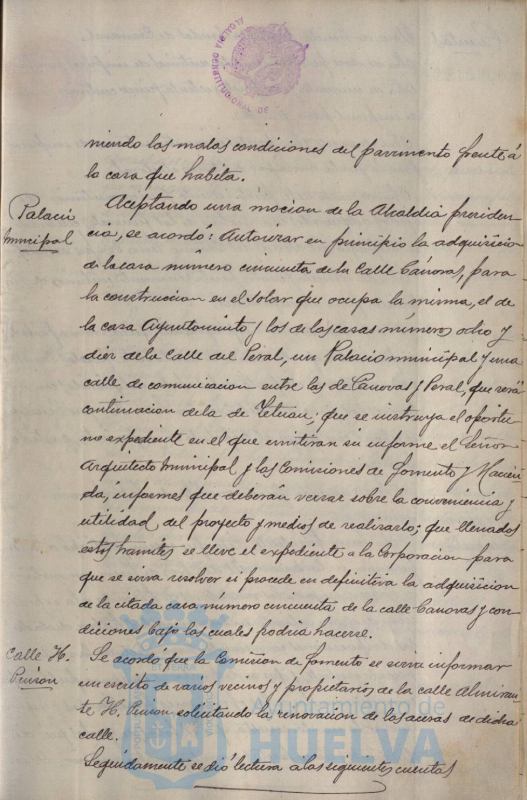 ALCALDIA CONSTITUCIONAL DE
niendo las malas condiciones del pavimento frente á
la casa que habita.
Palacio
municipal
Aceptando una mocion de la Alcaldia presiden-
cia, se acordó: Autorizar en principio la adquisicion
de la casa número cincuenta de la Calle Cánovas, para
la construccion en el solar que ocupa la misma, el de
la casa Ayuntamiento y los de las casas números ocho y
diez de la Calle del Peral, un Palacio municipal y una
calle de comunicacion entre las de Canovas y Peral, que será
continuacion de la de Tetuan; que se instruya el oportu-
no expediente en el que emitiran su informe el Señor
Arquitecto municipal y las Comisiones de Fomento y Hacien-
da, informes que deberán versar sobre la conveniencia y
utilidad del proyecto y medios de realizarlo; que llenados
estos tramites se lleve el expediente a la Corporacion para
que se sirva resolver si procede en definitiva la adquisicion
de la citada casa número cincuenta de la calle Canovas y con-
diciones bajo las cuales podria hacerse.
Calle H.
Pinzon
Se acordó que la Comision de Fomento se sirva informar
un escrito de varios vecinos y propietarios de la calle Almiran-
te H. Pinzon solicitando la renovacion de las aceras de dicha
calle.
Seguidamente se dió lectura a las siguientes cuentas
Ayuntamiento de
HUELVA